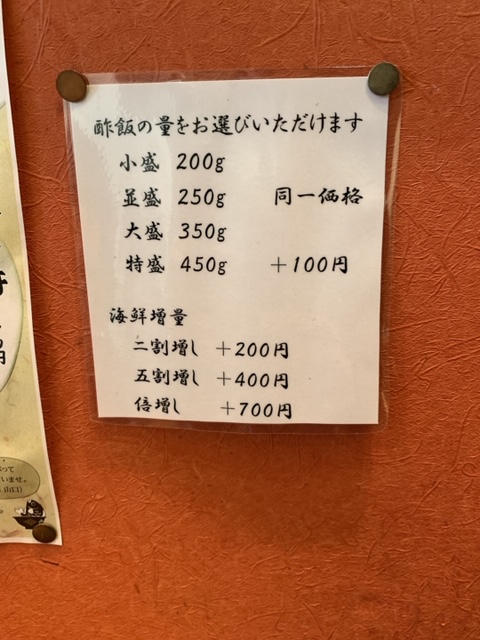 酢飯の量をお選びいただけます
小盛 200g
並盛 250g 同一価格
大盛 350g
特盛 450g +100円
海鮮増量
二割増し +200円
五割増し +400円
倍増し +700円
円
いませ。